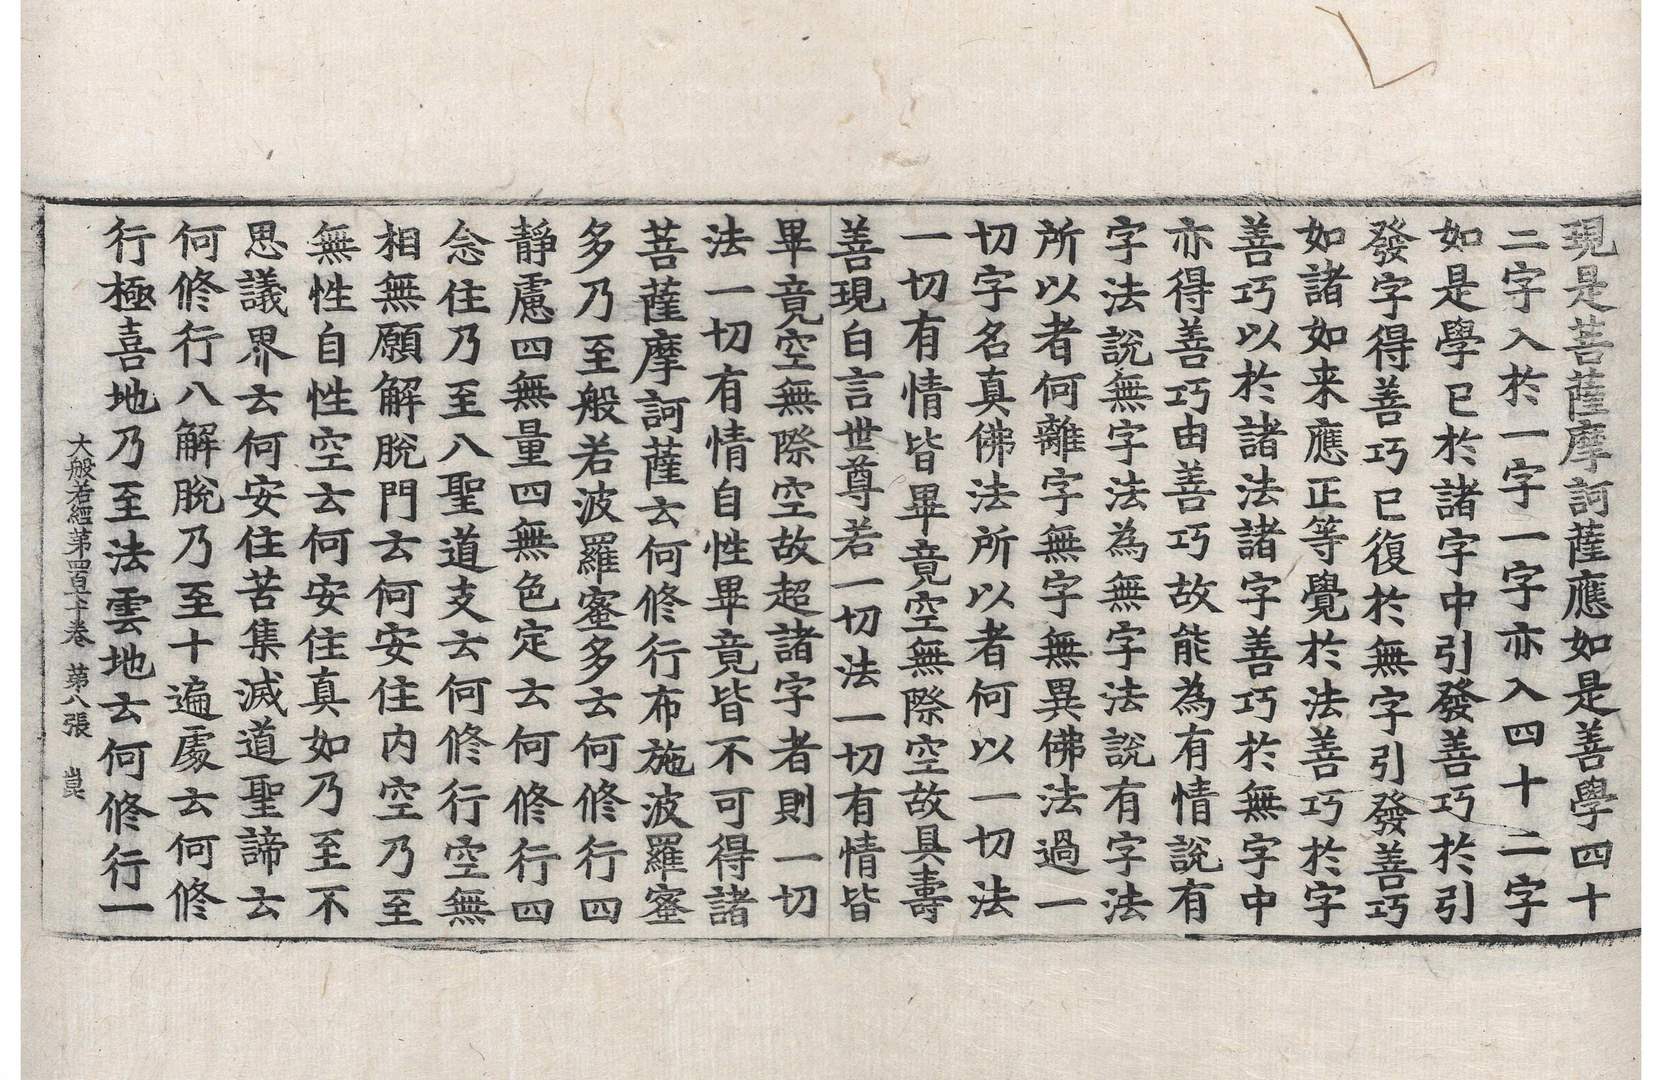 現是菩薩摩訶薩應如是善學四十
二字入於一字一字亦入四十二字
如是學已於諸字中引發善巧於引
發字得善巧已復於無字引發善巧
如諸如来應正等覺於法善巧於字
善巧以於諸法諸字善巧於無字中
亦得善巧由善巧故能為有情說有
字法說無字法為無字法說有字法
所以者何離字無字無異佛法過一
切字名真佛法所以者何以一切法
一切有情皆畢竟空無際空故具壽
善現白言世尊若一切法一切有情皆
畢竟空無際空故超諸字者則一切
法一切有情自性畢竟皆不可得諸
菩薩摩訶薩云何修行布施波羅蜜
多乃至般若波羅蜜多云何修行四
靜慮四無量四無色定云何修行四
念住乃至八聖道支云何修行空無
相無願解脫門云何安住內空乃至
無性自性空云何安住真如乃至不
思議界云何安住苦集滅道聖諦云
何修行八解脫乃至十遍處云何修
行極喜地乃至法雲地云何修行一
大般若經第四百九十卷 第八張 崑